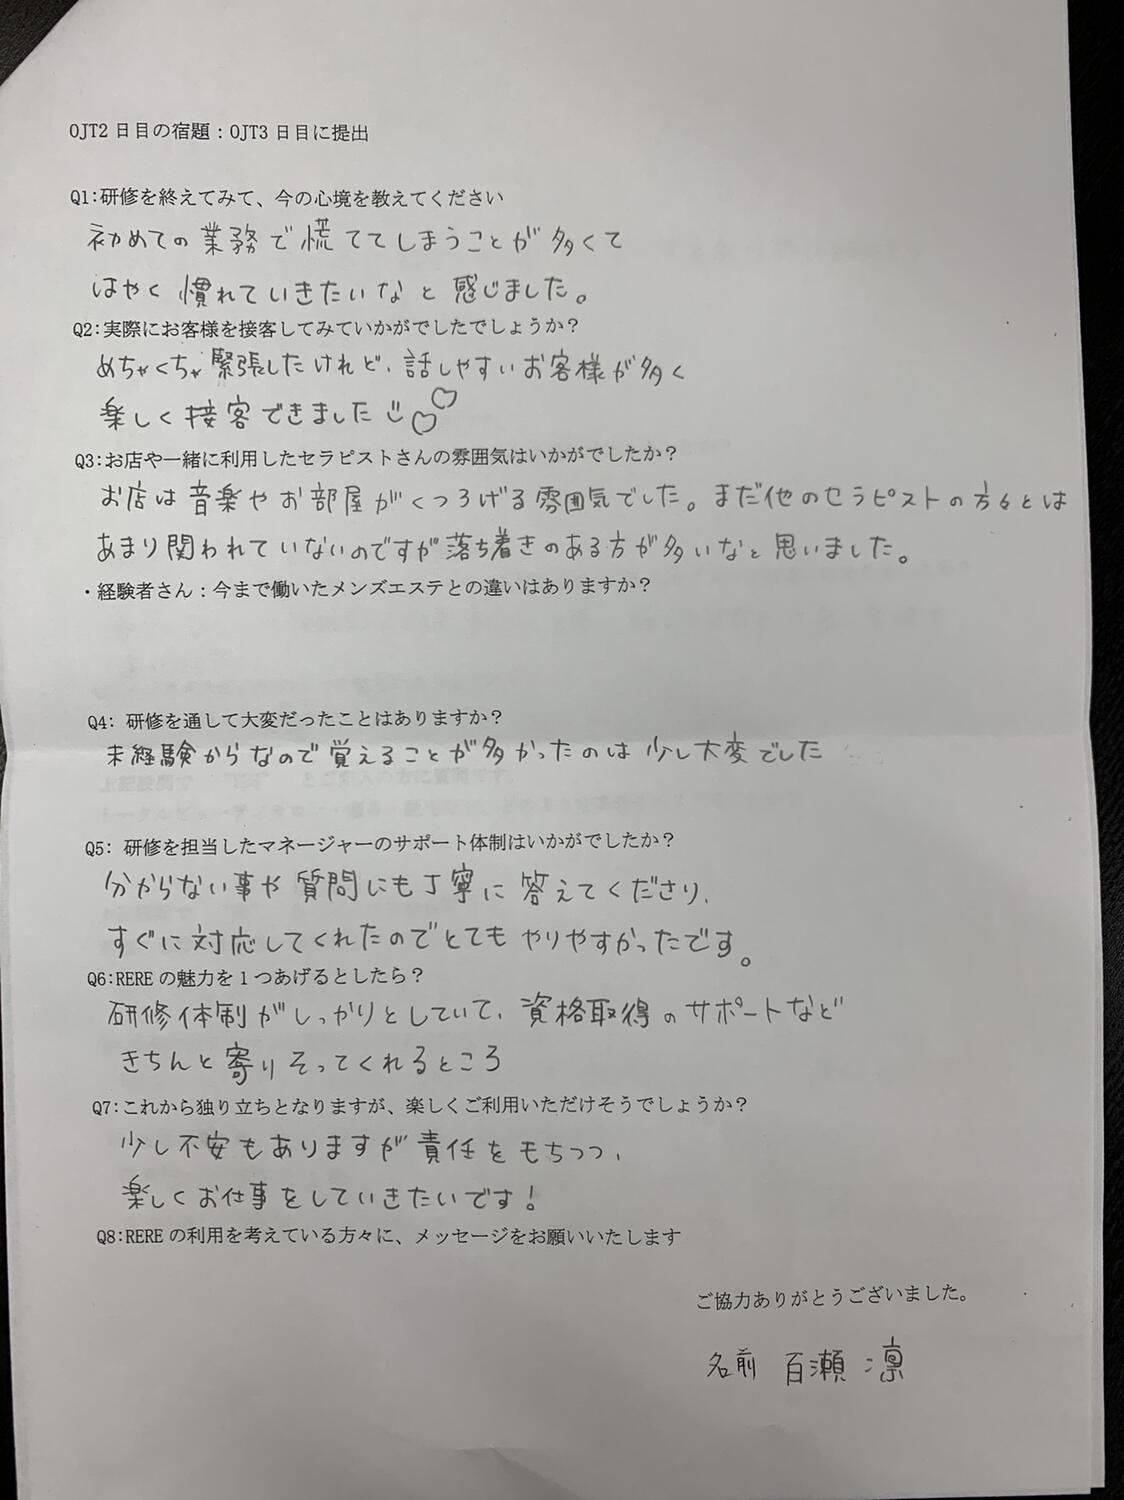 OJT2日目の宿題：OJT3日目に提出
Q1:研修を終えてみて、今の心境を教えてください
初めての業務で慌ててしまうことが多くて
はやく慣れていきたいなと感じました。
Q2:実際にお客様を接客してみていかがでしたでしょうか？
めちゃくちゃ緊張したけれど、話しやすいお客様が多く
楽しく接客できました
Q3:お店や一緒に利用したセラピストさんの雰囲気はいかがでしたか？
お店は音楽やお部屋がくつろげる雰囲気でした。まだ他のセラピストの方々とは
あまり関われていないのですが落ち着きのある方が多いなと思いました。
・経験者さん：今まで働いたメンズエステとの違いはありますか？
Q4: 研修を通して大変だったことはありますか？
未経験からなので覚えることが多かったのは少し大変でした
Q5: 研修を担当したマネージャーのサポート体制はいかがでしたか？
分からない事や質問にも丁寧に答えてくださり、
すぐに対応してくれたのでとてもやりやすかったです。
Q6:REREの魅力を1つあげるとしたら？
研修体制がしっかりとしていて、資格取得のサポートなど
きちんと寄りそってくれるところ
Q7:これから独り立ちとなりますが、楽しくご利用いただけそうでしょうか？
少し不安もありますが責任をもちつつ、
楽しくお仕事をしていきたいです！
Q8:REREの利用を考えている方々に、メッセージをお願いいたします
ご協力ありがとうございました。
名前 百瀬 凛